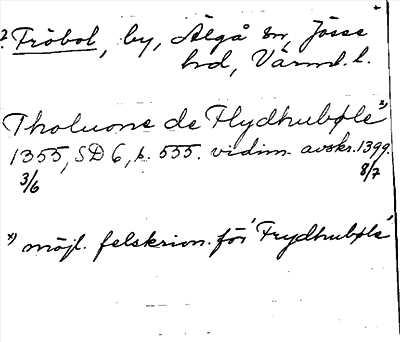 ? Fröbol, by, Älgå sn, Jösse
hrd, Värml. l.
Tholuone de Flydhubøle x)
1355, SD 6, s. 555. vidim. avskr. 1399
3/6 8/7
x) möjl. felskrivn. för 'Frydhubøle'